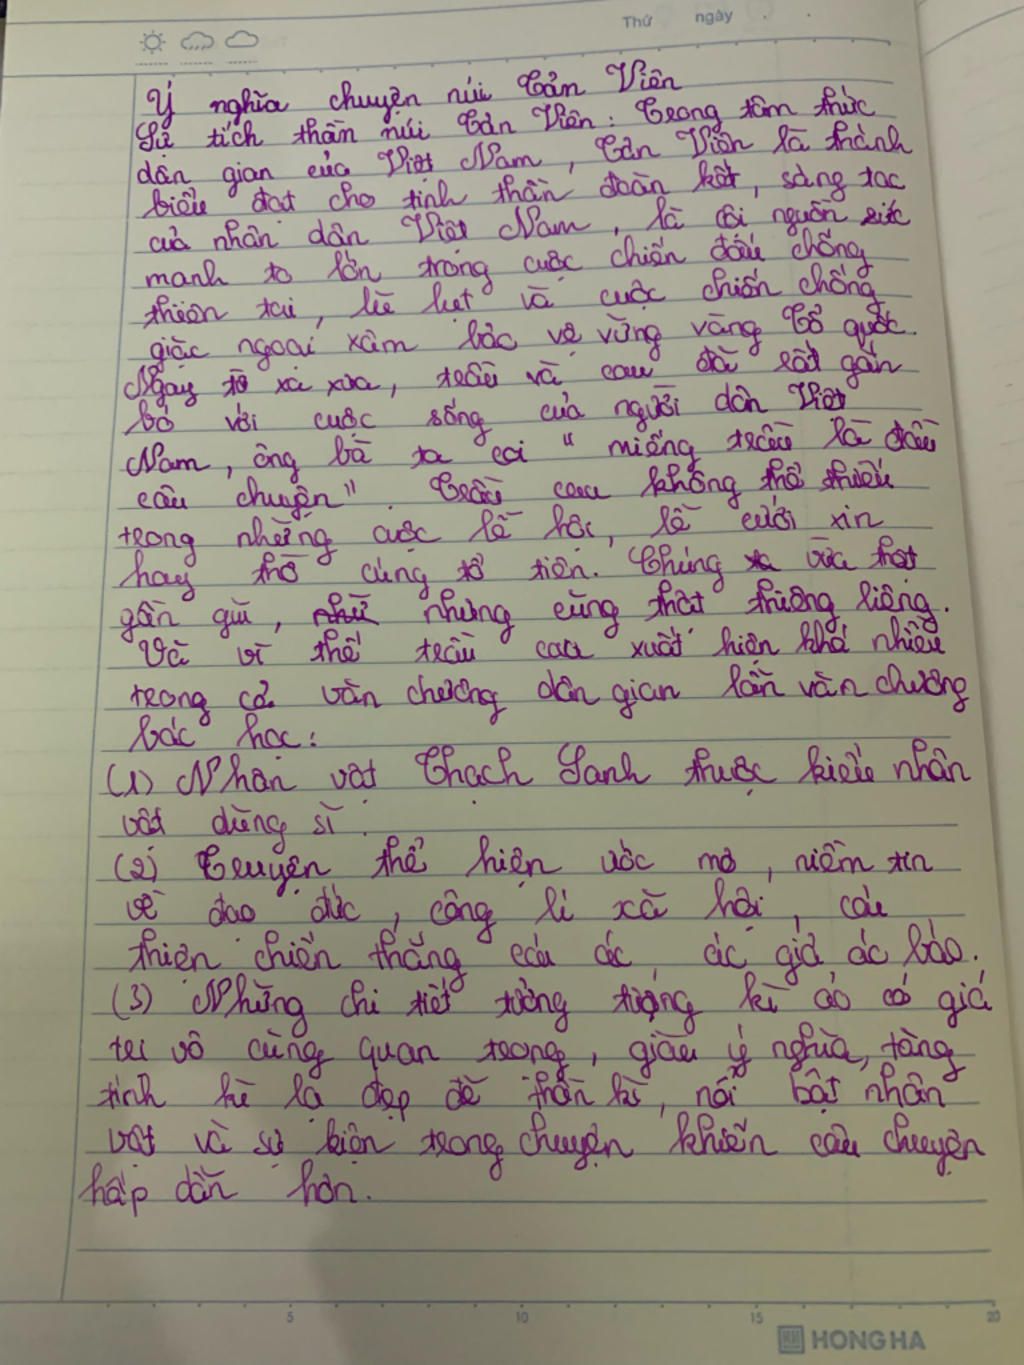 Thứ ngày . .
Ý nghĩa chuyện núi Tản Viên
Sự tích thần núi Tản Viên: Trong tâm thức
dân gian của Việt Nam, Tản Viên là thành
biểu đạt cho tinh thần đoàn kết, sáng tạo
của nhân dân Việt Nam, là cội nguồn sức
mạnh to lớn trong cuộc chiến đấu chống
thiên tai, lũ lụt và cuộc chiến chống
giặc ngoại xâm bảo vệ vững vàng Tổ quốc.
Ngay từ xa xưa, trầu và cau đã rất gắn
bó với cuộc sống của người dân Việt
Nam, ông bà ta coi "miếng trầu là đầu
câu chuyện" Trầu cau không thể thiếu
trong những cuộc lễ hội, lễ cưới xin
hay thờ cúng tổ tiên. Chúng ta vừa thật
gần gũi, nhưng cũng thật thiêng liêng.
Và vì thế trầu cau xuất hiện khá nhiều
trong cả văn chương dân gian lẫn văn chương
bác học:
(1) Nhân vật Thạch Sanh thuộc kiểu nhân
vật dũng sĩ.
(2) Truyện thể hiện ước mơ, niềm tin
về đạo đức, công lí xã hội, cái
thiện chiến thắng cái ác, ác giả ác báo.
(3) Những chi tiết tưởng tượng kì ảo có giá
trị vô cùng quan trọng, giàu ý nghĩa, tăng
tính kì lạ đẹp đẽ thần kì, nổi bật nhân
vật và sự kiện trong chuyện khiến câu chuyện
hấp dẫn hơn.
5 10 15 20
HONG HA